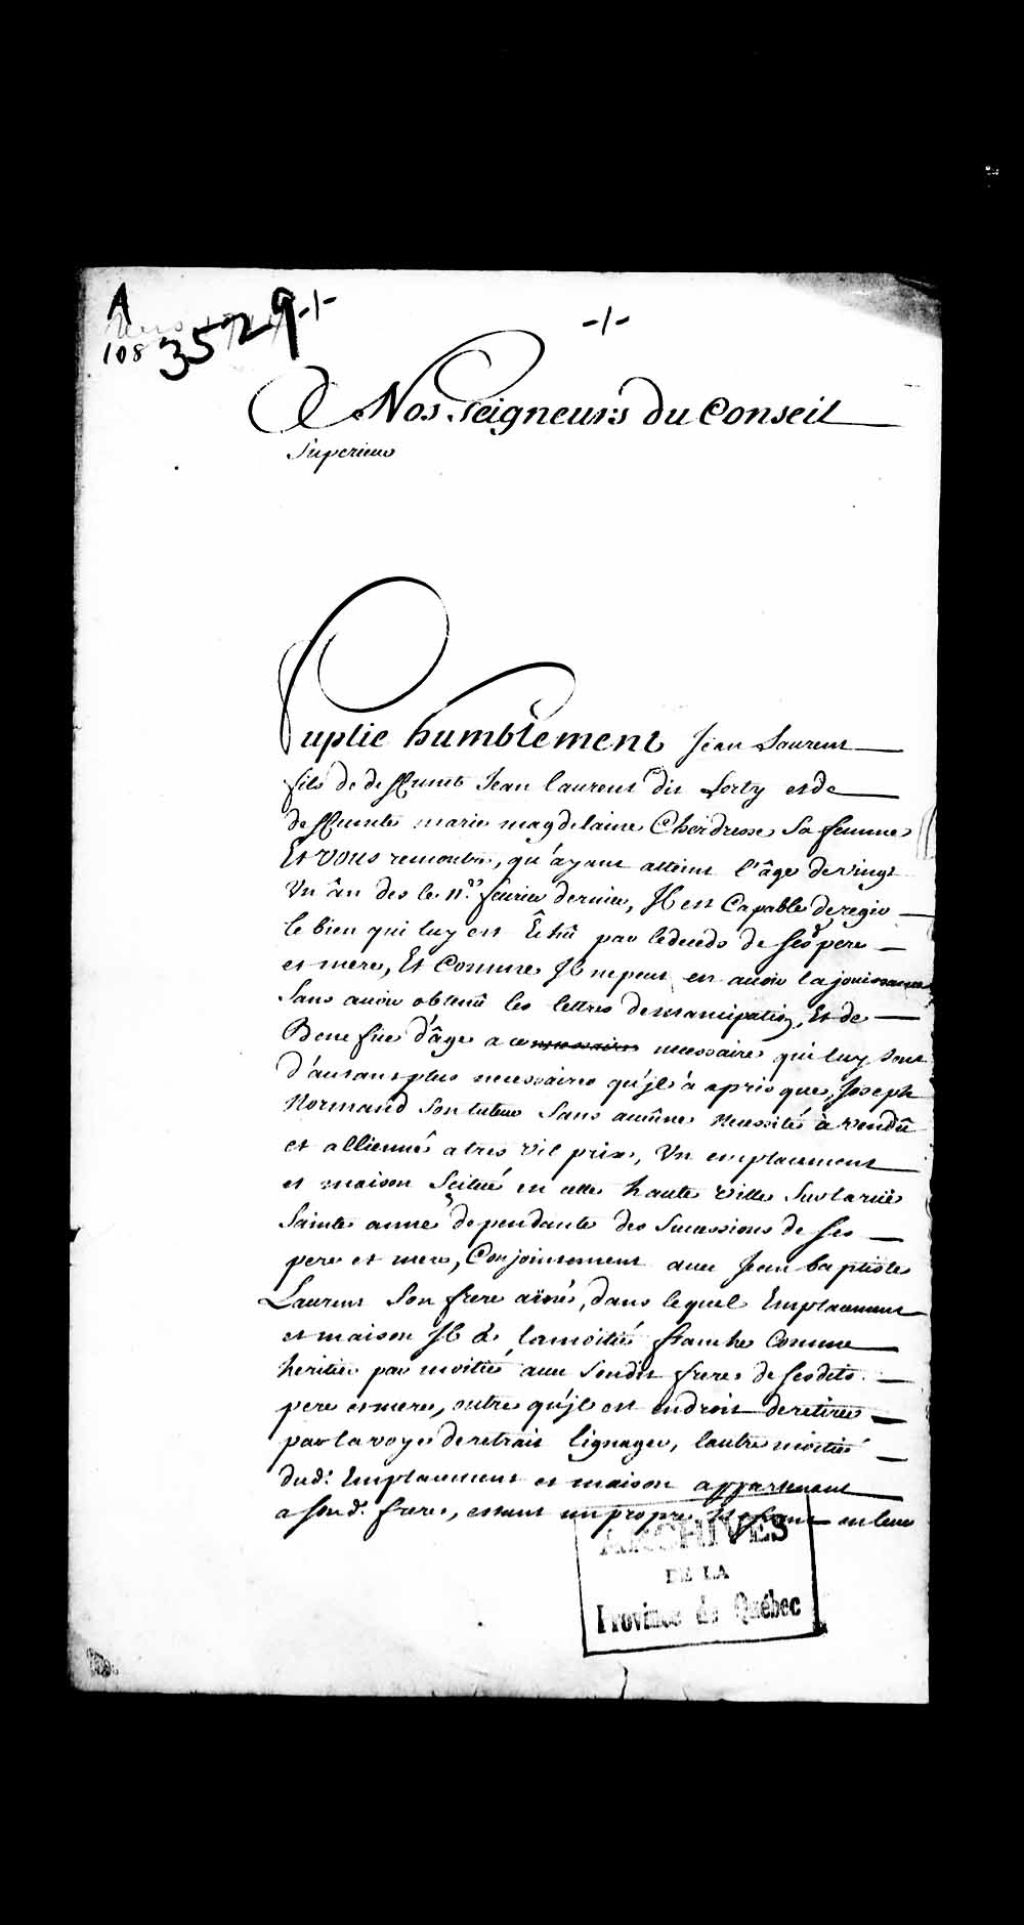 A
108 3529 -/-
-/-
A Nos Seigneurs du Conseil
Superieur
Suplie humblement Jean Laurent
fils de deffunt Jean laurent dit Lorty et de
deffunte marie magdelaine Choisdresse sa femme
Et vous remontre, qu'ayant atteint l'âge de vingt
Un ân des le 11.e fevrier dernier, Il est Capable de regir
le bien qui luy est Êchû par le deceds de ses pere
et mere, Et Comme Il ne peut en avoir la jouissance
Sans avoir obtenû les lettres d'emancipation, Et de
Benefice d'âge a ce necessaires qui luy sont
d'autant plus necessaires qu'jl a apris que, Joseph
Normand Son tuteur Sans aucûne necessité à vendû
et allienné a tres vil prix, Un emplacement
et maison Scitué en cette haute ville Sur la ruë
Sainte anne dependante des Sucessions de Ses
pere et mere, Conjointement avec Jean baptiste
Laurent Son frere aîné, dans lequel Emplacement
et maison Il a lamoitié franche Comme
heritier par moitié avec Sondit frere de Sesdits
pere et mere, outre qu'jl est endroit de retirer
par la voye de retrait lignager, lautre moitié
dud: Emplacement et maison appartenant
a Sond: frere, estant un propre en leur
ARCHIVES
DE LA
Province de Québec